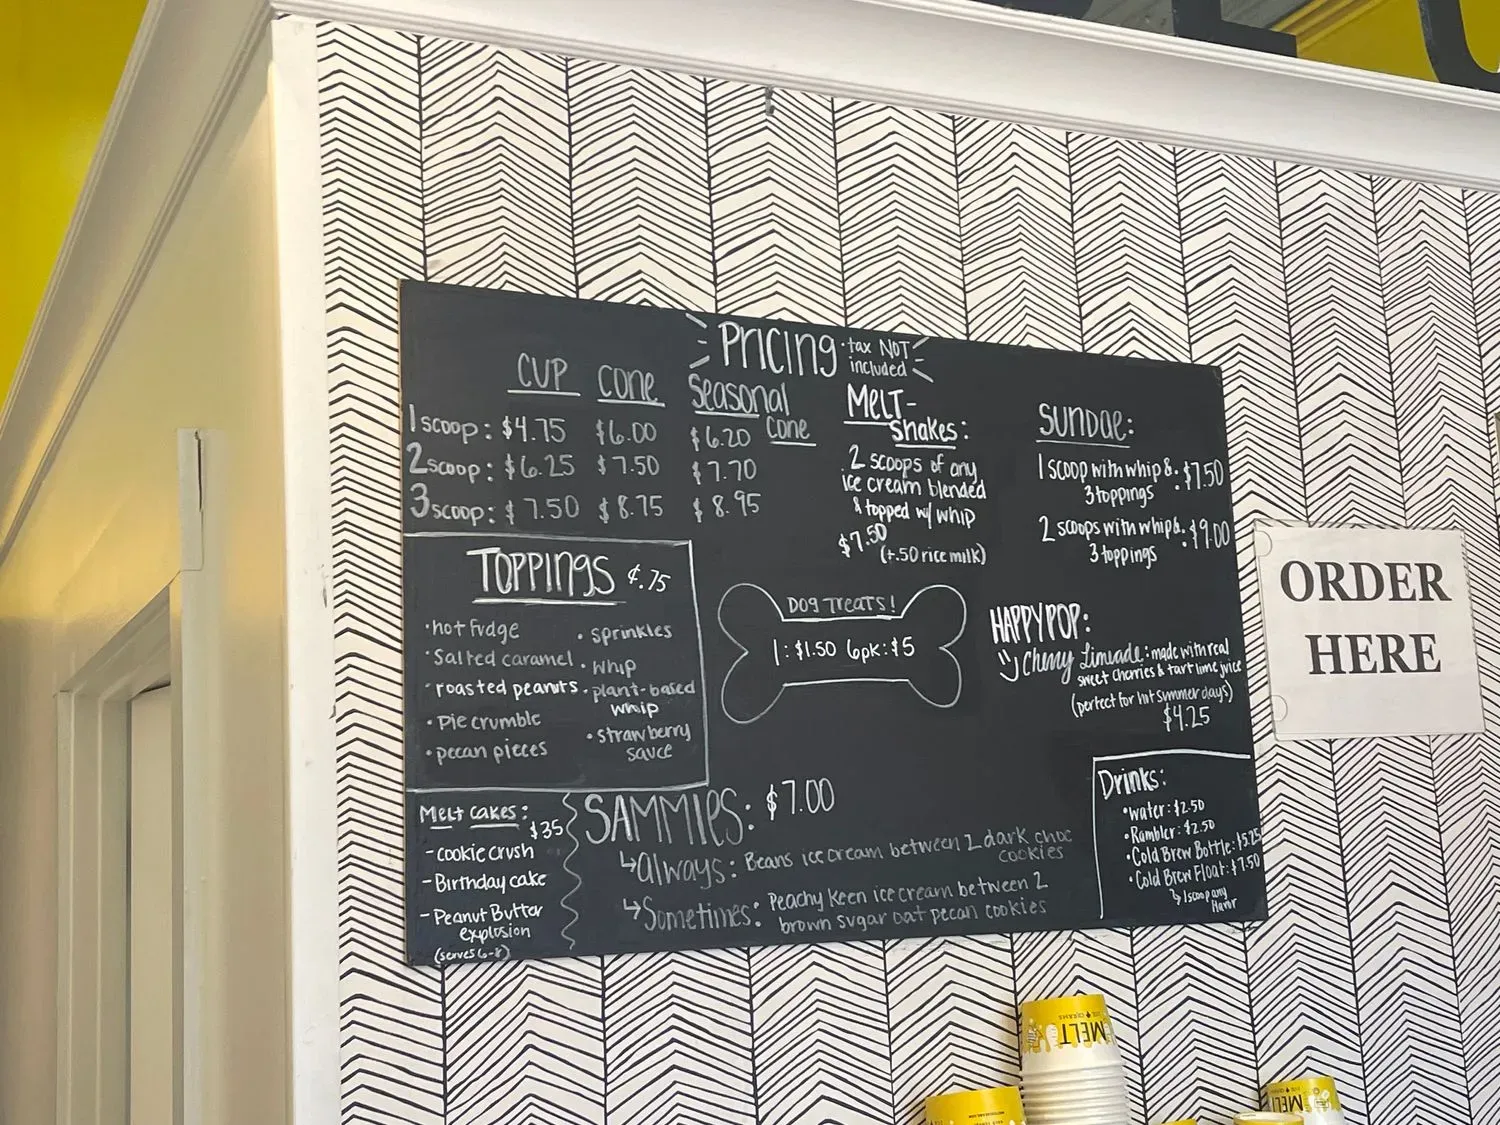 Pricing
·tax NOT
included
CUP CONE Seasonal
Cone
1 scoop: $4.75 $6.00 $6.20
2 scoop: $6.25 $7.50 $7.70
3 scoop: $7.50 $8.75 $8.95
MELT-
Shakes:
2 scoops of any
ice cream blended
& topped w/ whip
$7.50
(+.50 rice milk)
SUNDAE:
1 scoop with whip &
3 toppings : $7.50
2 scoops with whip &
3 toppings : $9.00
TOPPINGS ¢.75
·hot fudge
·Salted caramel
·roasted peanuts
·Pie crumble
·pecan pieces
·sprinkles
·whip
·plant-based
whip
·strawberry
sauce
DOG TREATS!
1: $1.50 6pk: $5
HAPPY POP:
Cherry Limeade: made with real
sweet cherries & tart lime juice
(perfect for hot summer days)
$4.25
Melt Cakes:
$35
-cookie crush
-Birthday cake
-Peanut Butter
explosion
(serves 6-8)
SAMMIES: $7.00
↳Always: Beans ice cream between 2 dark choc
cookies
↳Sometimes: Peachy Keen ice cream between 2
brown sugar oat pecan cookies
Drinks:
·water: $2.50
·Rambler: $2.50
·Cold Brew Bottle: $5.25
·Cold Brew Float: $7.50
↳ 1 scoop any
flavor
ORDER
HERE
MELT
ICE CREAMS
MELT